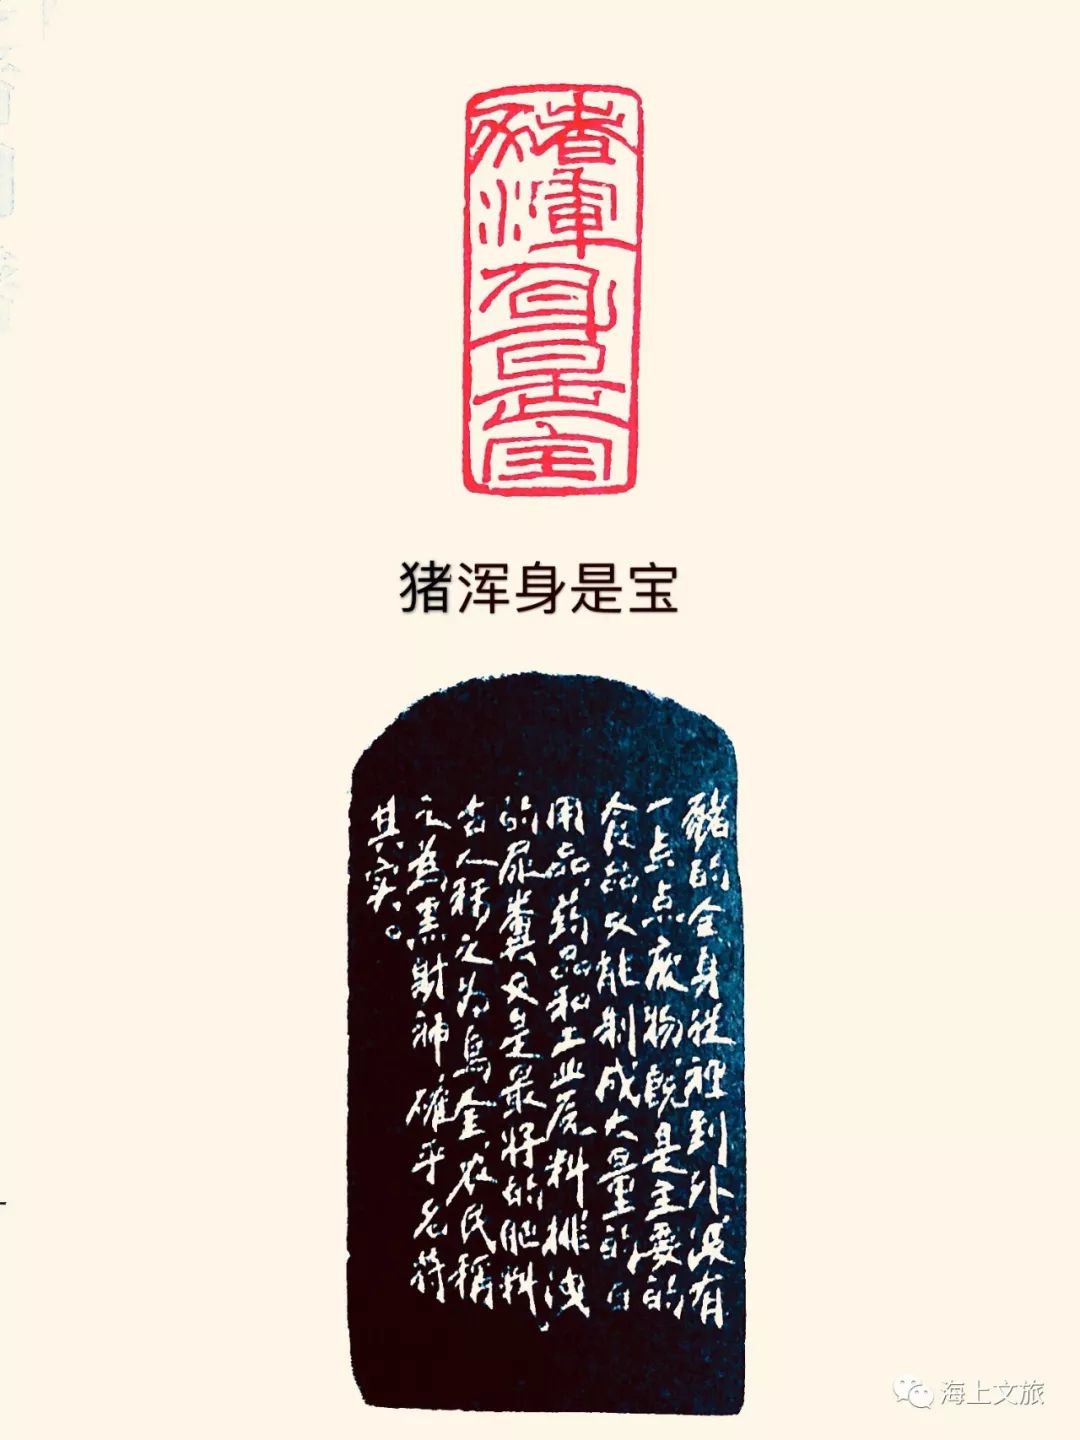 豬渾身是宝
猪浑身是宝
豬的全身從裡到外没有
一点点废物,既是主要的
食品,又能制成大量的日
用品、药品和工业原料,排洩
的尿粪又是最好的肥料。
古人称之为烏金,农民稱
之為黑財神,確乎名符
其实。
海上文旅